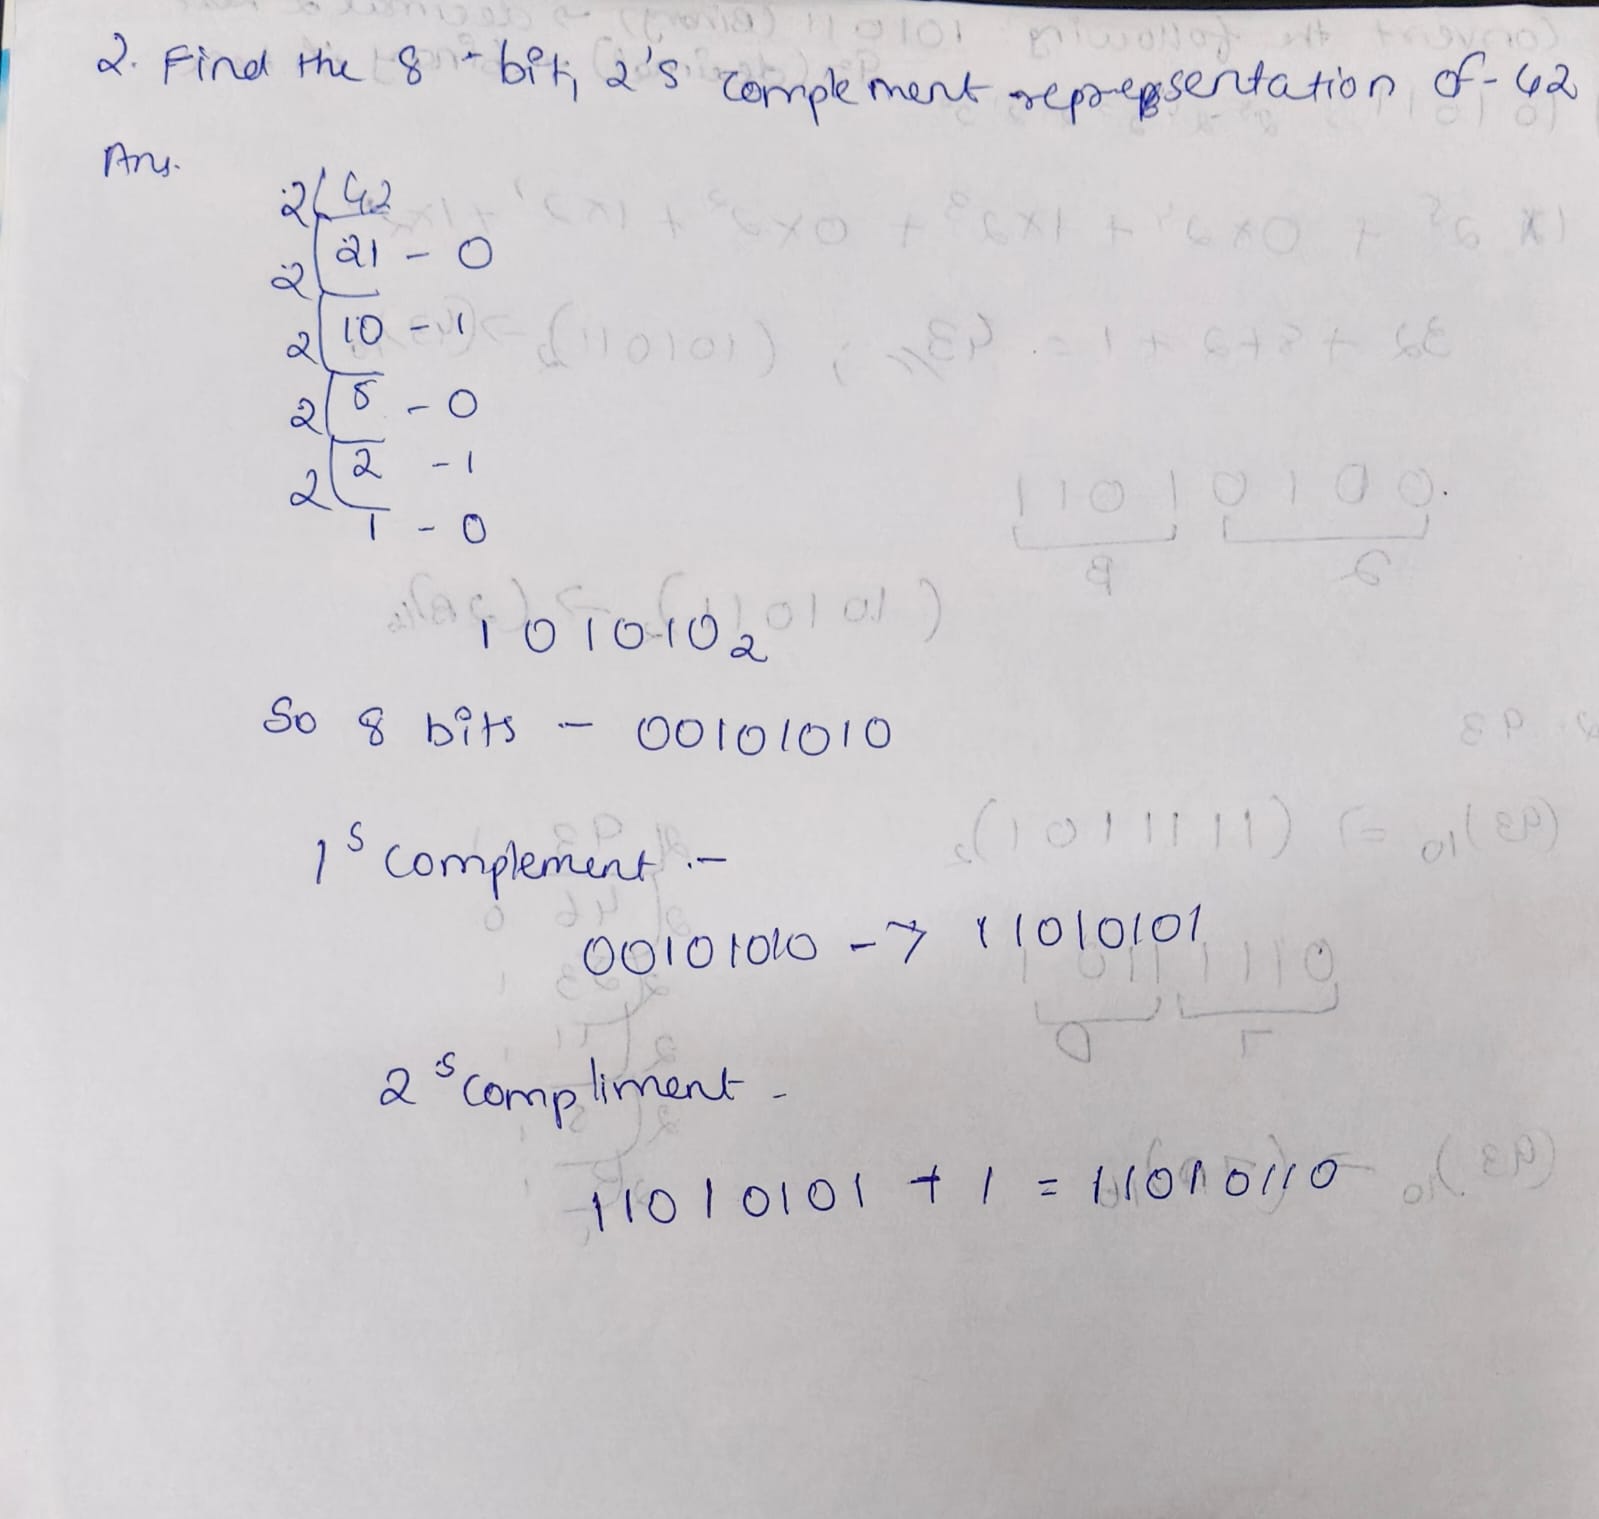 2. Find the 8-bit, 2's complement representation of -42
Ans.
2 42
2 21 - 0
2 10 - 1
2 5 - 0
2 2 - 1
1 - 0
101010₂
So 8 bits - 00101010
1ˢ complement :-
00101010 -> 11010101
2ˢ compliment -
11010101 + 1 = 11010110